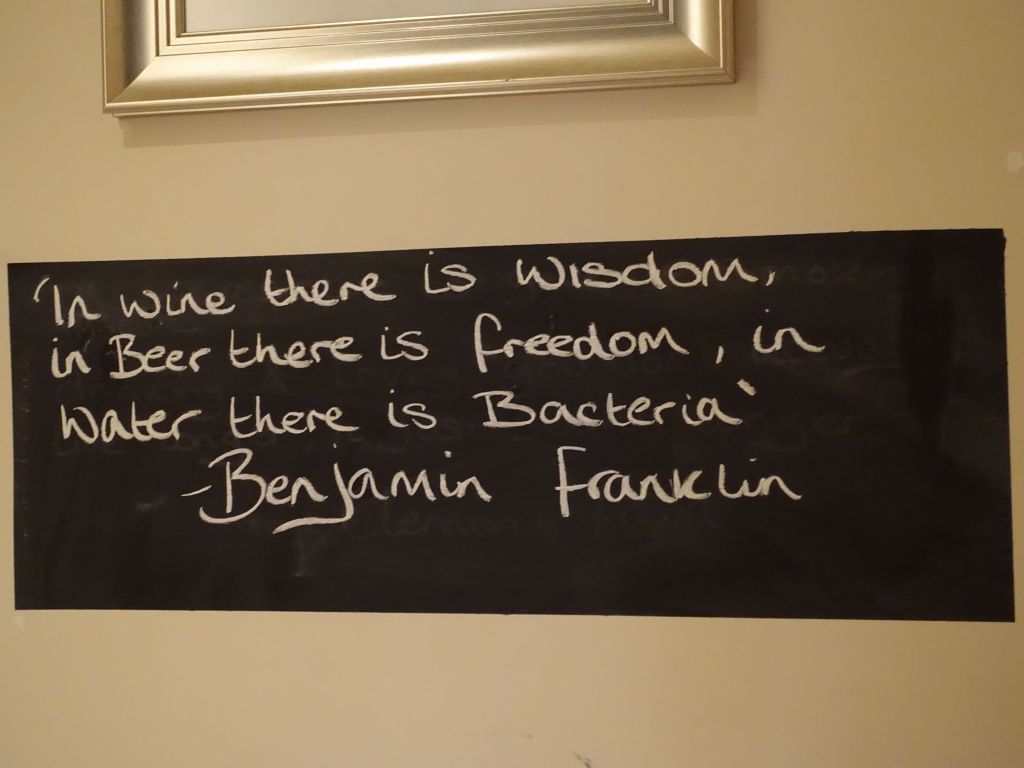 'In wine there is wisdom,
in Beer there is freedom, in
water there is Bacteria'
-Benjamin Franklin